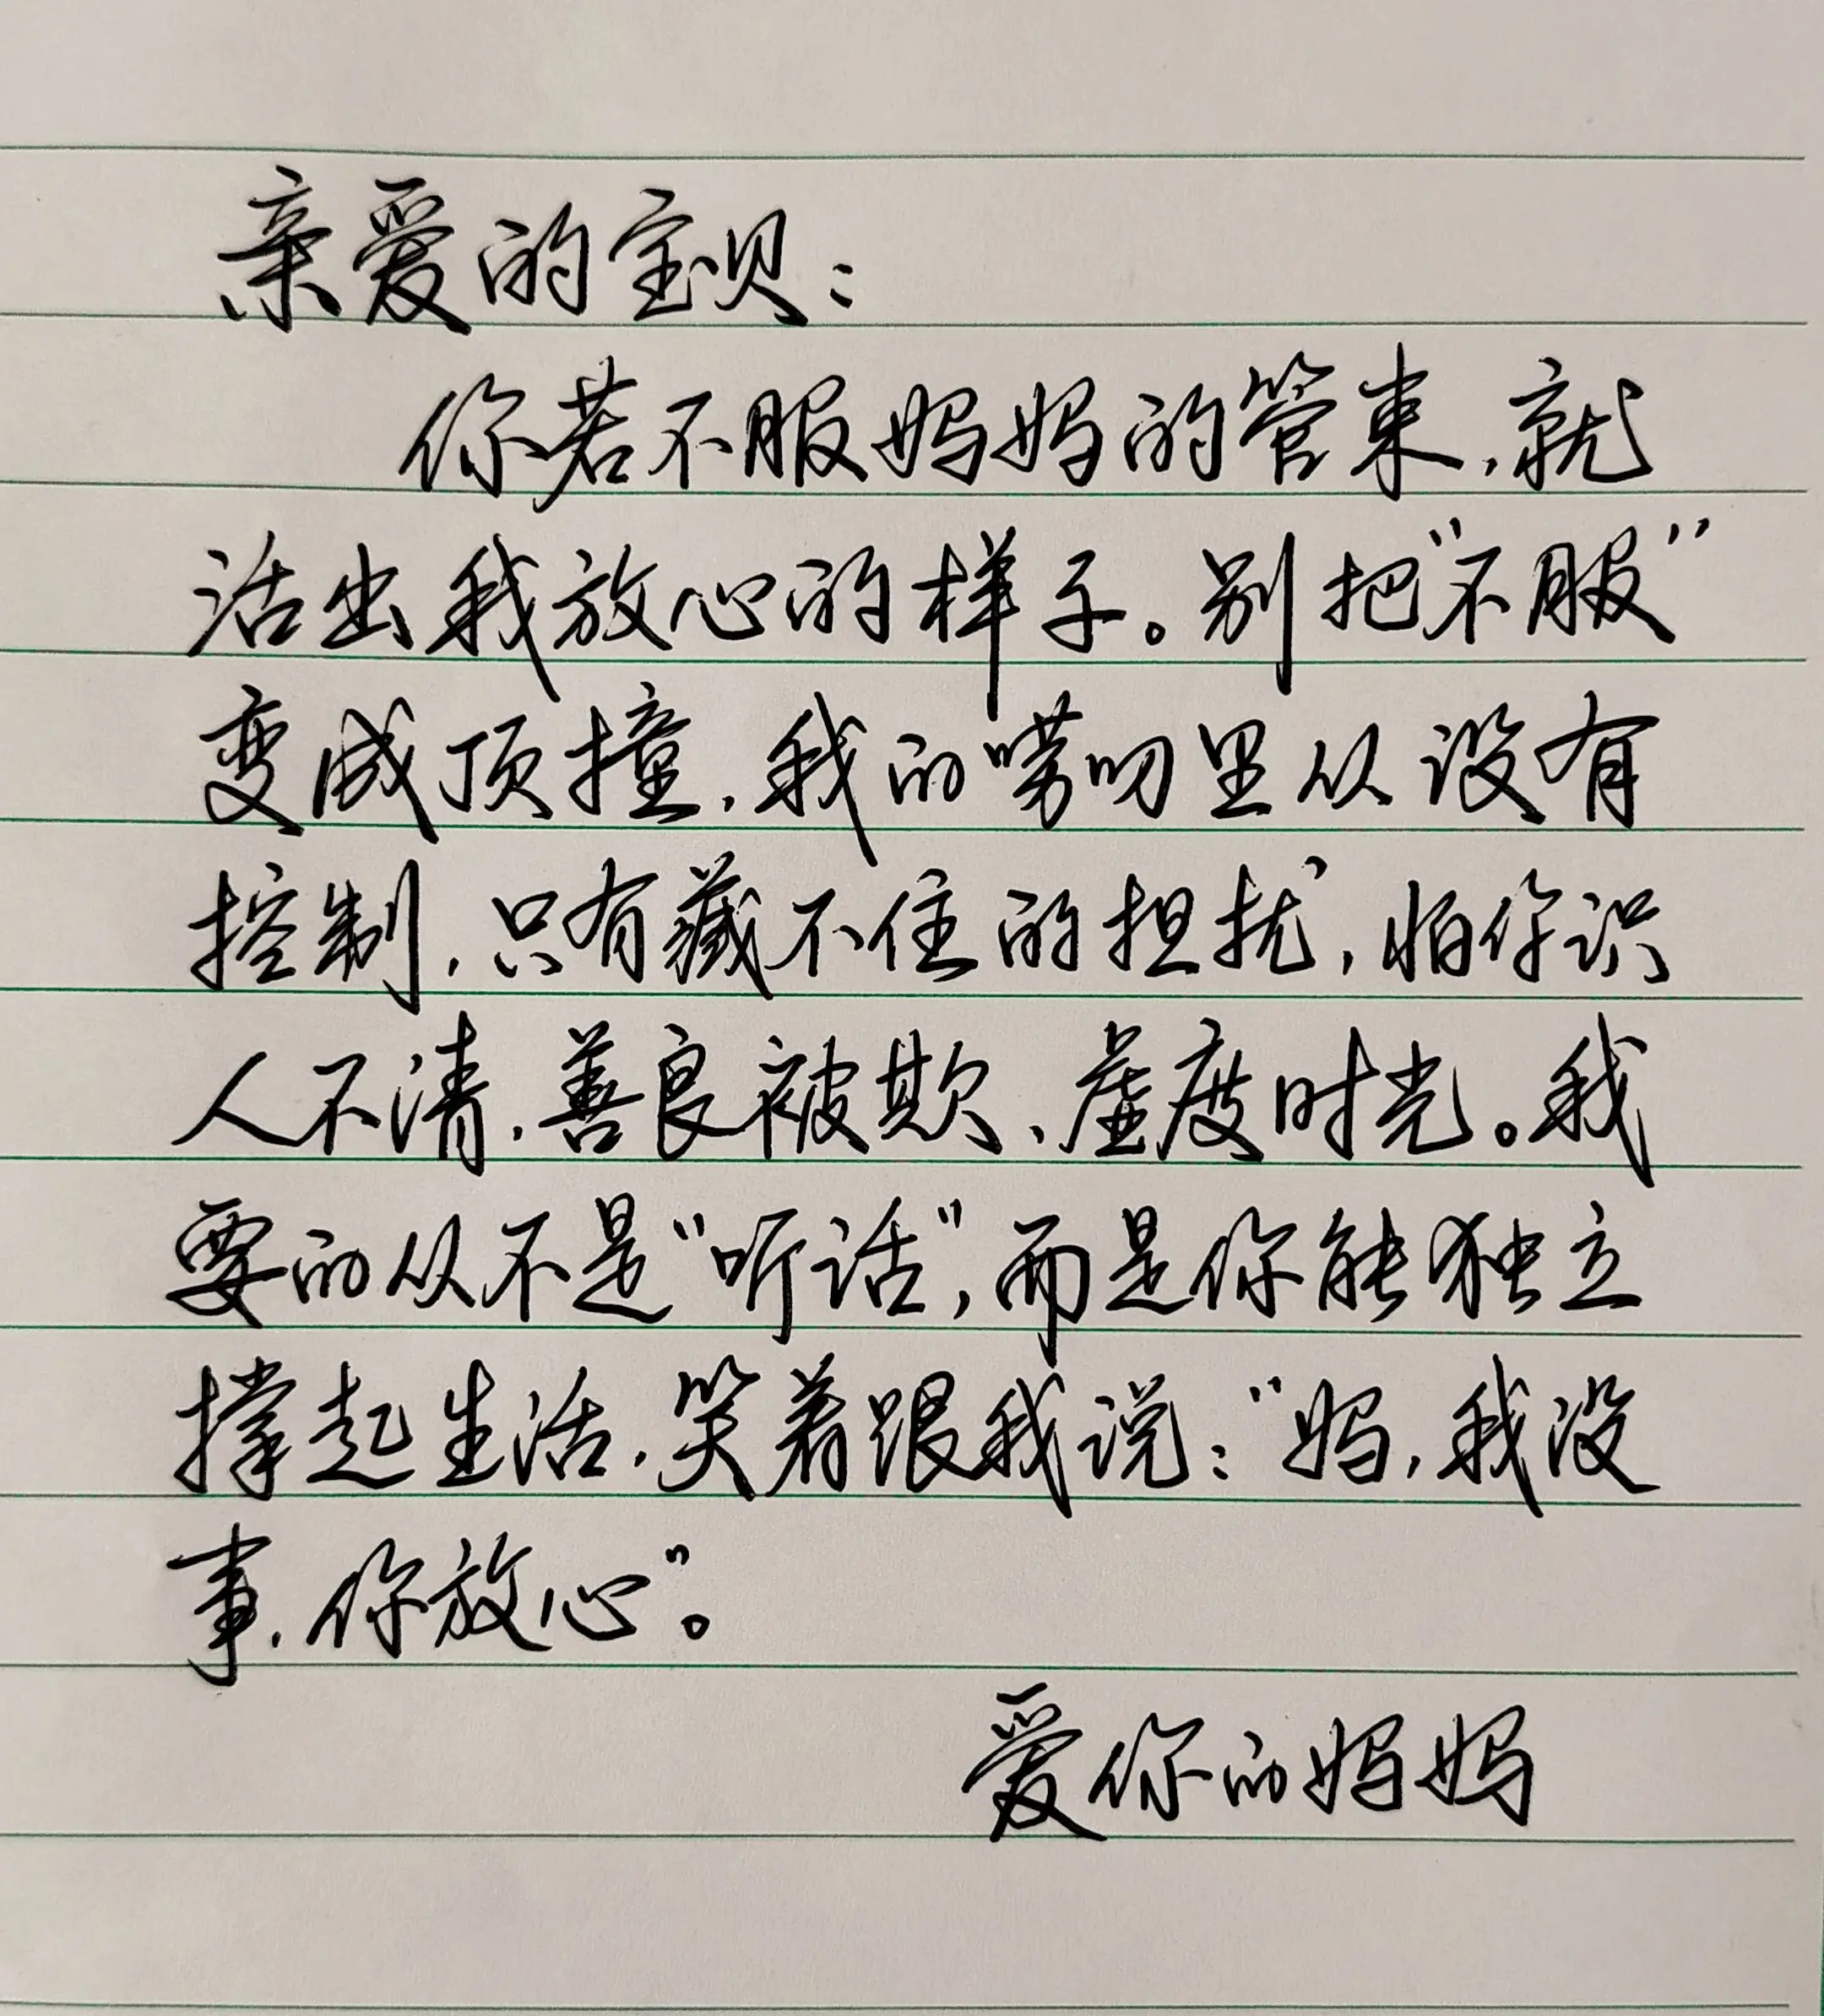 亲爱的宝贝:
你若不服妈妈的管束,就
活出我放心的样子。别把“不服”
变成顶撞,我的唠叨里从没有
控制,只有藏不住的担扰,怕你识
人不清,善良被欺、虚度时光。我
要的从不是“听话”,而是你能独立
撑起生活,笑着跟我说:“妈,我没
事,你放心”。
爱你的妈妈